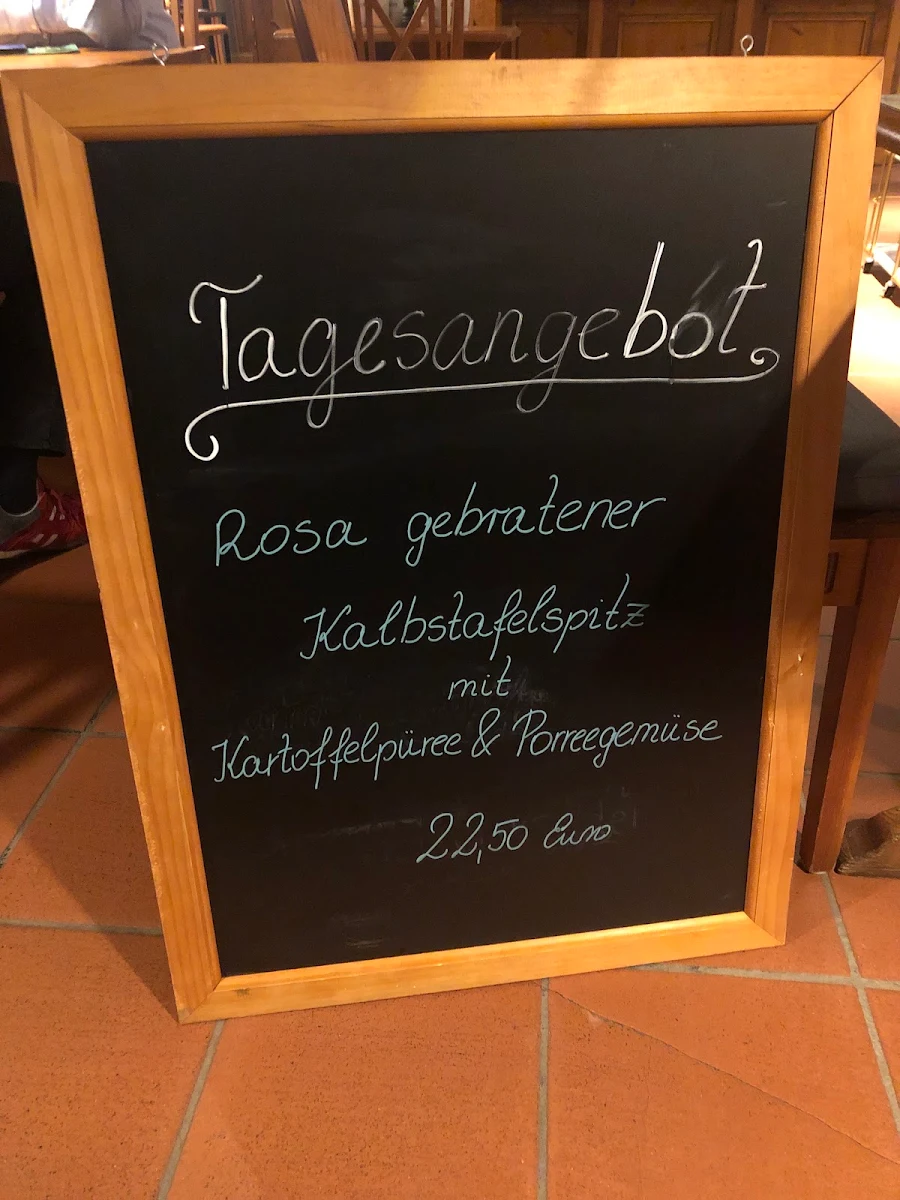 Tagesangebot
Rosa gebratener
Kalbstafelspitz
mit
Kartoffelpüree & Porreegemüse
22,50 Euro